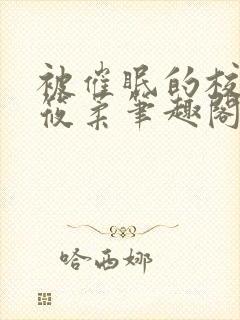 被催眠的校
筱柔笔趣阁
哈西娜